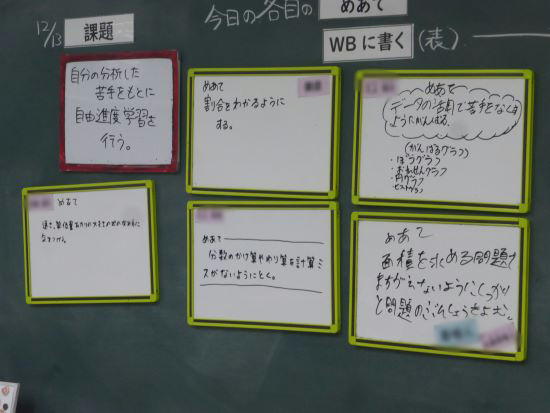 12/13
課題
今日の各自の めあて
WBに書く(表)
自分の分析した
苦手をもとに
自由進度学習を
行う。
めあて
割合をわかるように
する。
めあて
データの活用で苦手をなくす
ようにがんばる。
(がんばるグラフ)
・ぼうグラフ
・おれせんグラフ
・円グラフ
・ヒストグラム
めあて
速さ、単位量あたりの大きさ
めあて
分数のかけ算やわり算を計算ミ
スがないようにとく。
めあて
面積を求める問題で
まちがえないようにしっかり
と問題のぶんしょうをよむ。